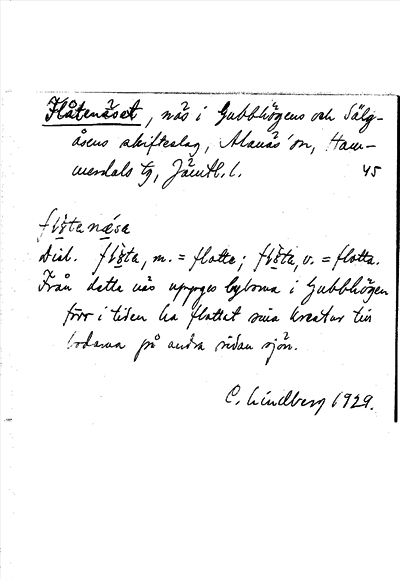 Flåtenäset, näs i Gubbhögens och Sälg-
åsens skifteslag, Alanäs sn, Ham-
merdals tg, Jämtl. l. 45
flɷ̀tanæsa
Dial. flɷ̀ta, m. = flotte; flɷ̀ta, v. = flotta.
Från detta näs uppges byborna i Gubbhögen
förr i tiden ha flottat sina kreatur till
bodarna på andra sidan sjön.
C. Lindberg 1929.